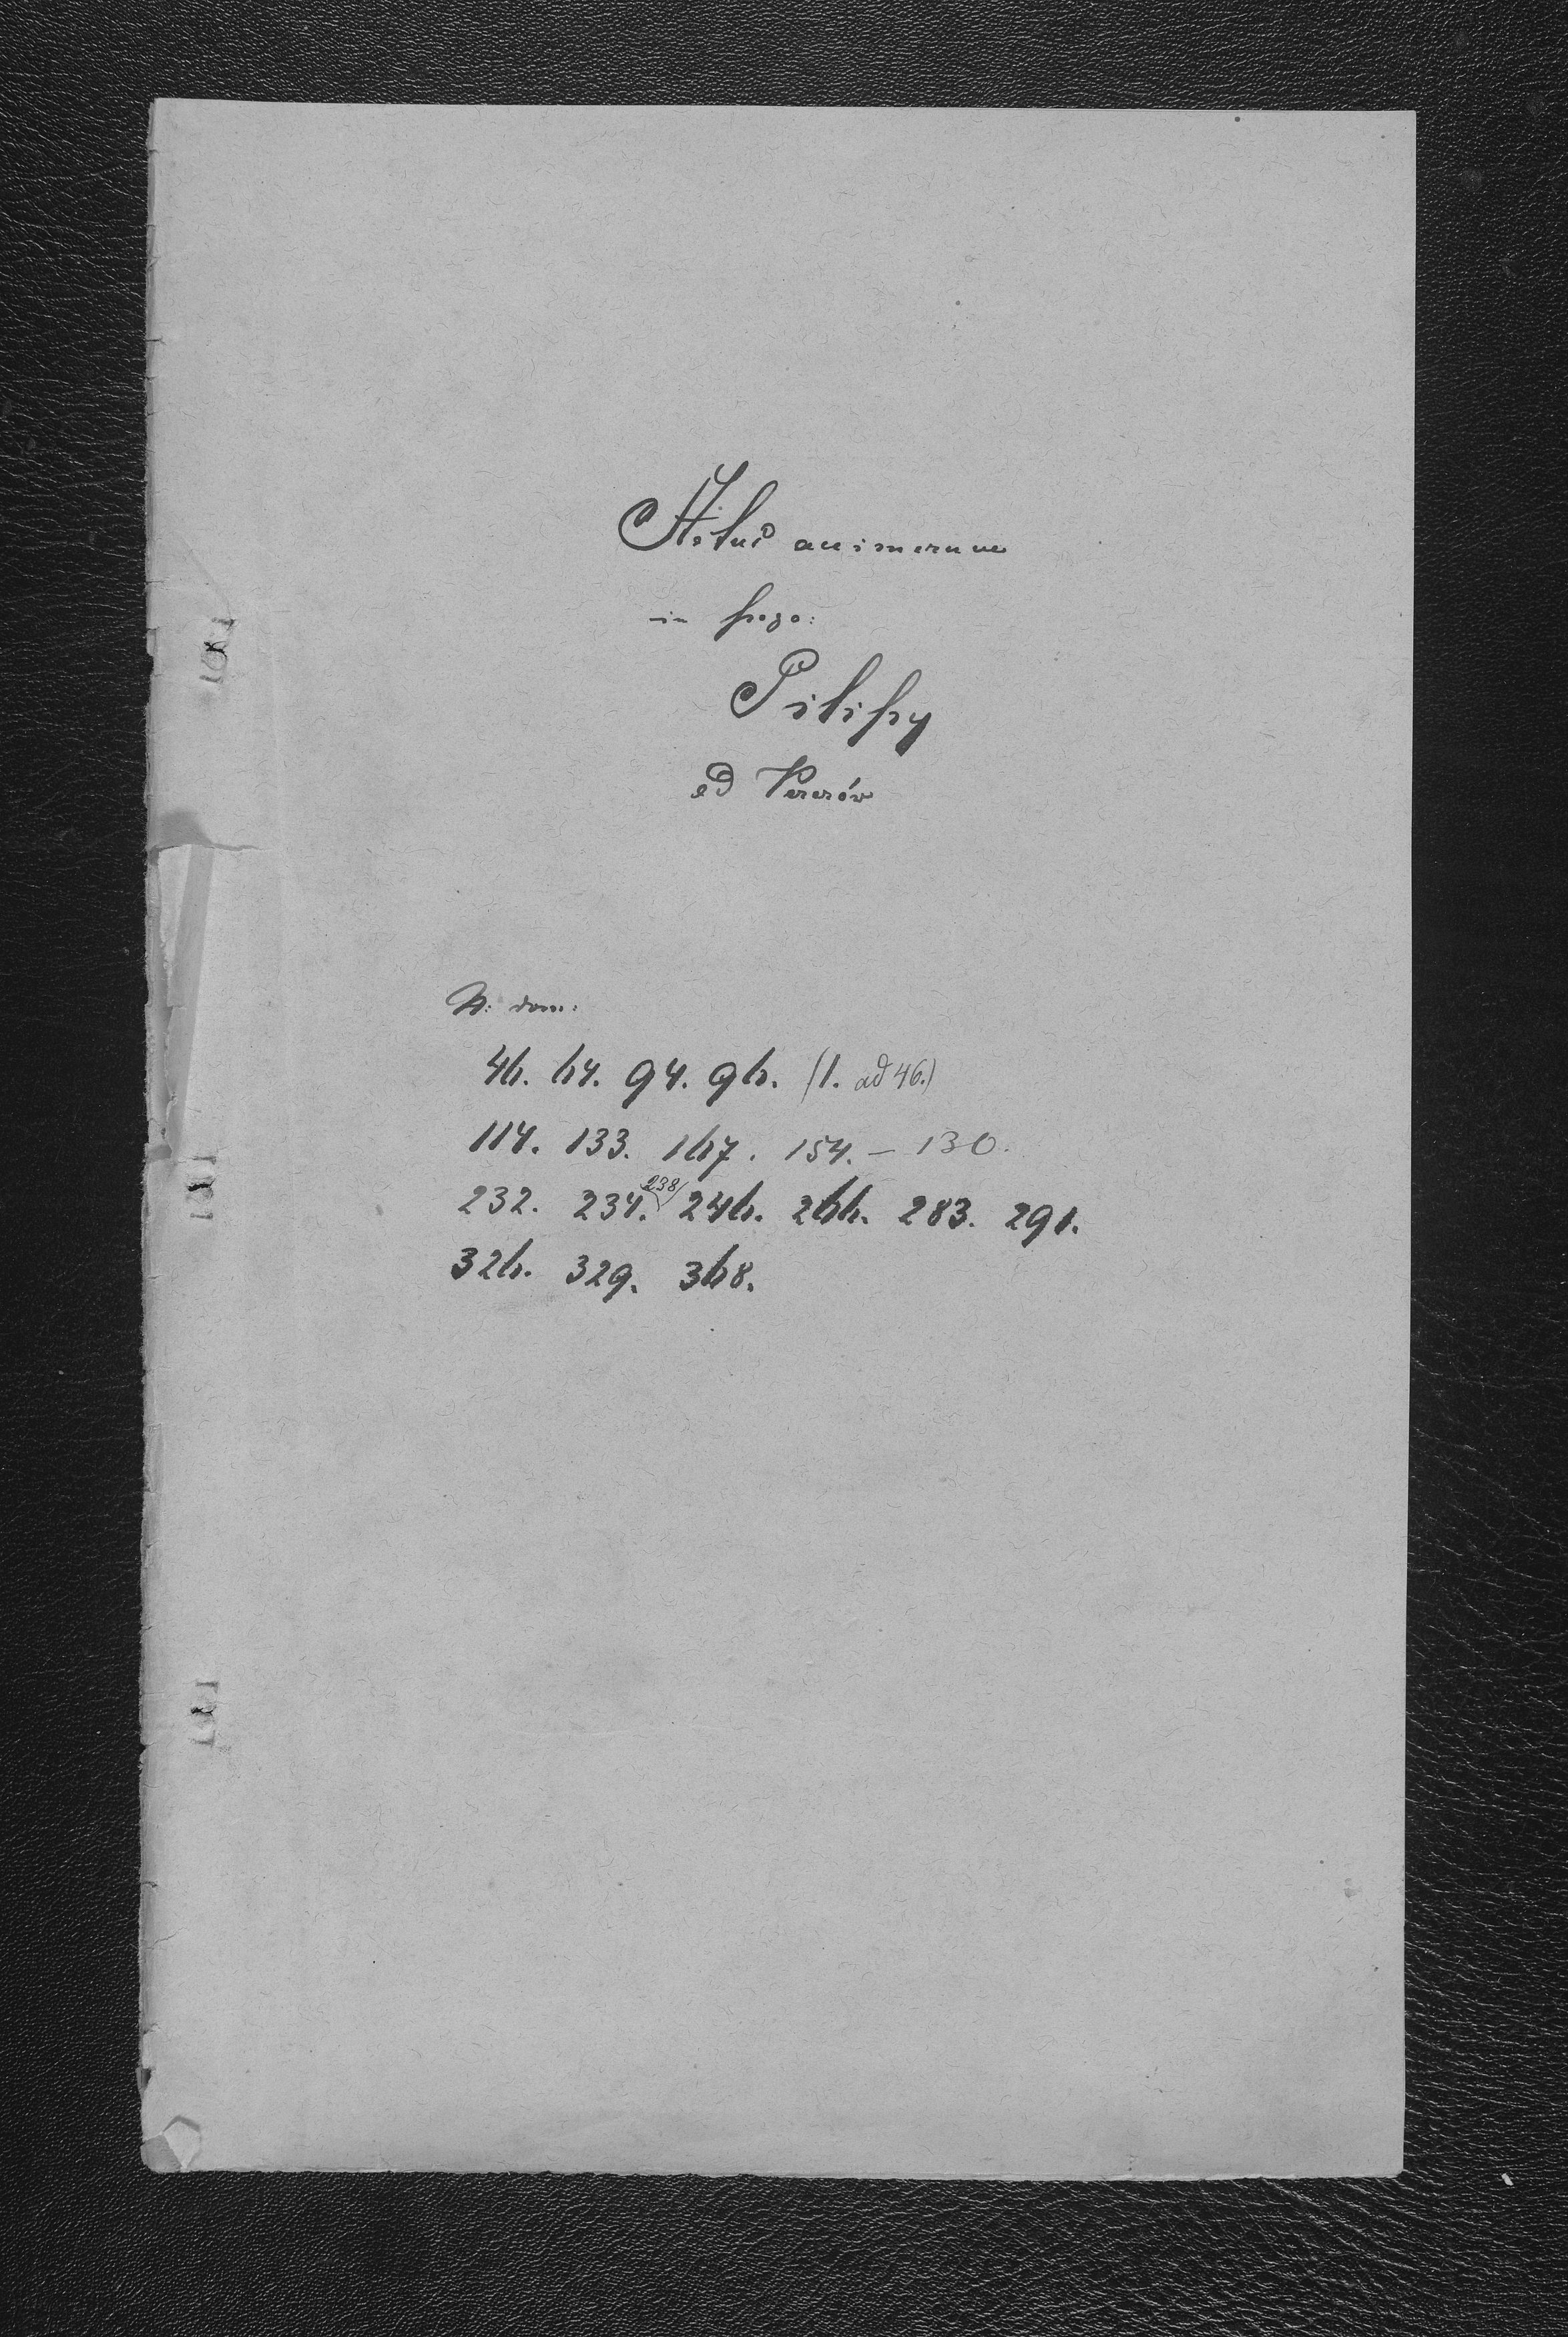 Status animarum
in pago:
Pilipy
ad Pererów
N: dom:
46. 64. 94. 96. (1. ad 46.)
114. 133. 167. 154. – 130.
232. 234. 238/ 246. 266. 283. 291.
326. 329. 368.